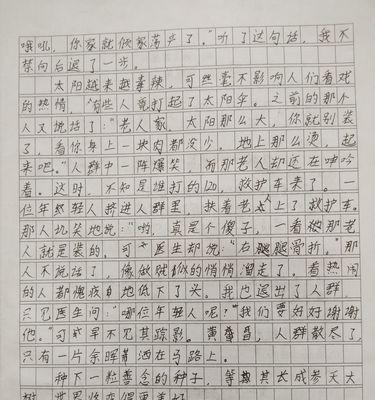 哦吼，你家就倾家荡产了。”听了这句话，我不
禁向后退了一步。
太阳越来越毒辣，可丝毫不影响人们看戏
的热情，有些人竟打起了太阳伞。之前的那个
人又说话了：“老人家，太阳那么大，你就别装
了，看你身上一块肉都没少，地上那么烫，起
来吧。”人群中一阵爆笑，而那老人却还在呻吟
着。这时，不知是谁打的120，救护车来了。一
位年轻人挤进人群里，扶着老人上了救护车。
那人讥笑地说：“哟，真是个傻子，一看那老
人就是装的。可医生却说：“右腿骨折。”那
人不说话了，像做贼似的悄悄溜走了。看热闹
的人都愧疚自地低下了头。我也退出了人群，
只见医生问：“哪位年轻人呢？”我们要好好谢谢
他。”可或早不见其踪影。黄昏，人群散尽了，
只有一片余晖洒在马路上。
种下一粒善念的种子，等其长成参天大
树，世界将变得更美好